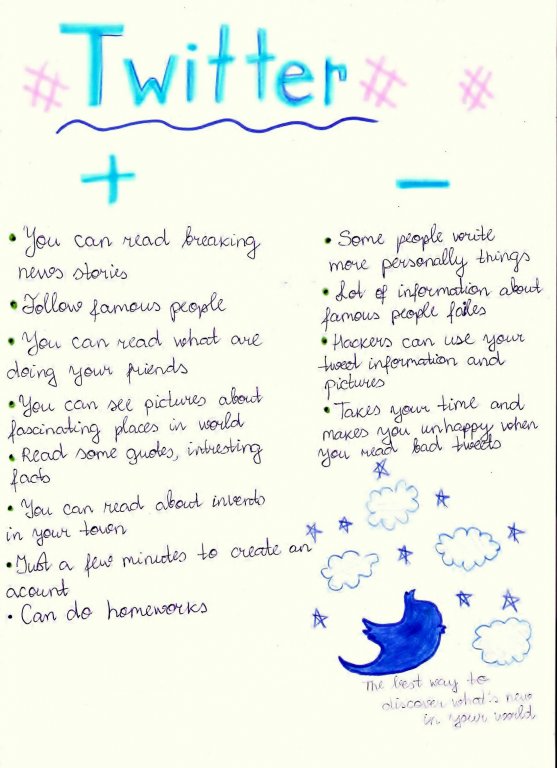 # Twitter # #
+
• You can read breaking
news stories
• Follow famous people
• You can read what are
doing your friends
• You can see pictures about
fascinating places in world
• Read some quotes, intresting
facts
• You can read about invents
in your town
• Just a few minutes to create an
acount
• Can do homeworks
−
• Some people write
more personally things
• Lot of information about
famous people failes
• Hackers can use your
tweet information and
pictures
• Takes your time and
makes you unhappy when
you read bad tweets
The best way to
discover what's new
in your world